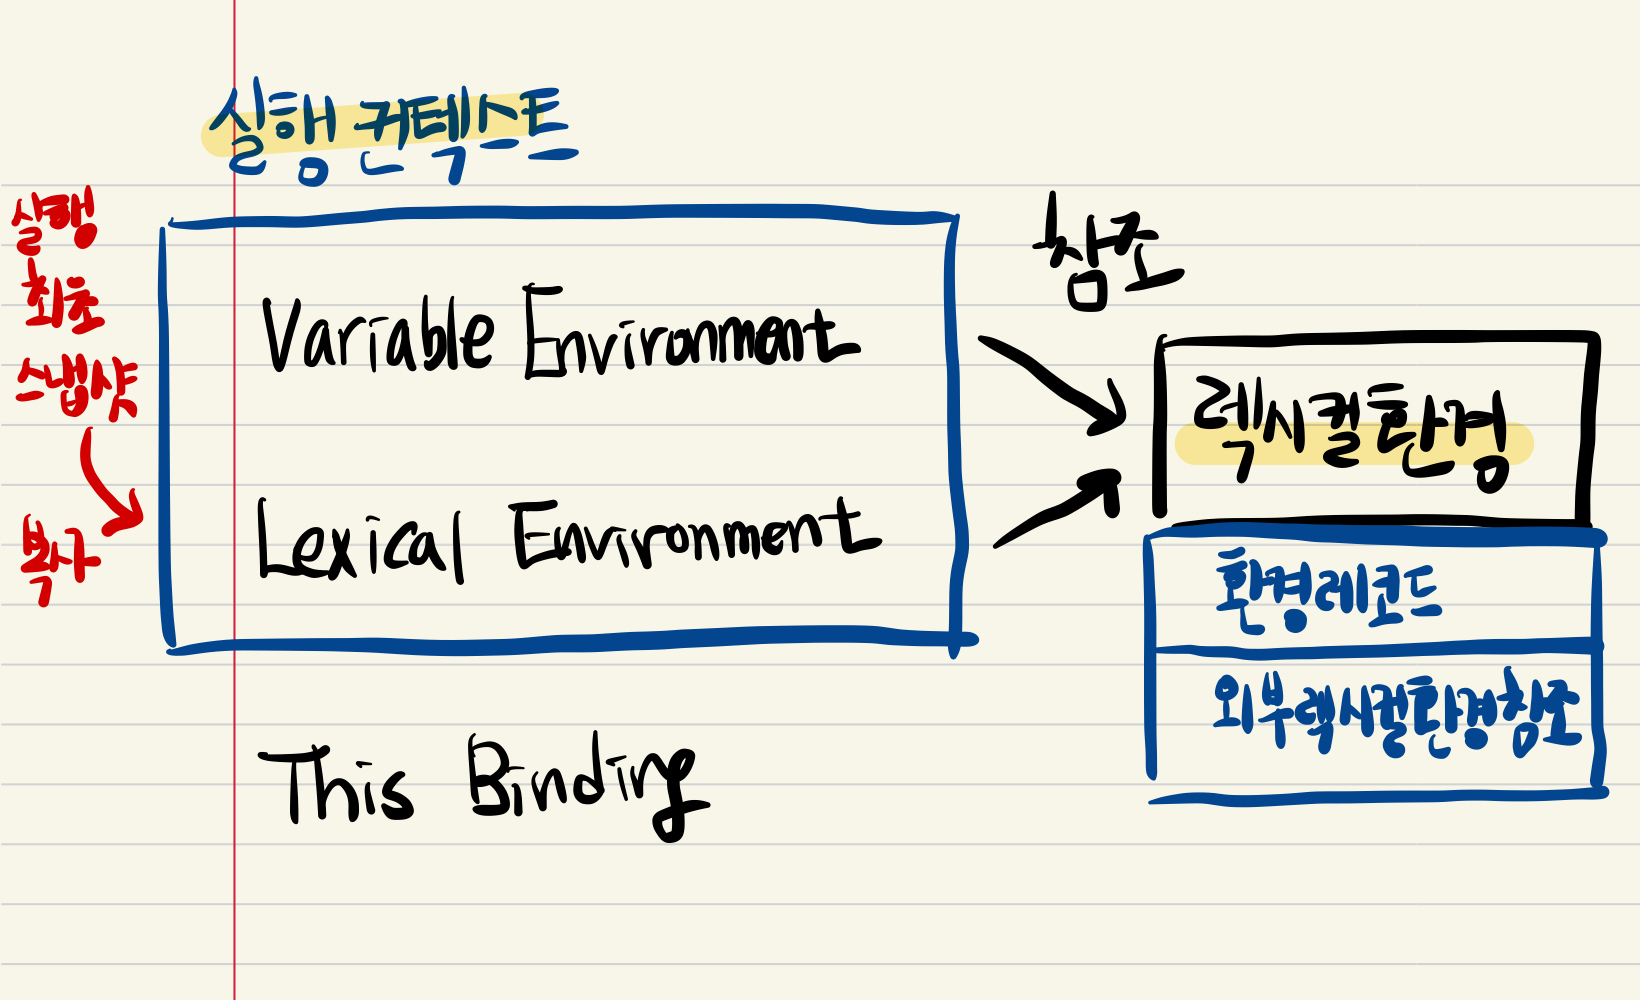 실행 컨텍스트
실행
최초
스냅샷
복사
Variable Environment
Lexical Environment
This Binding
참조
렉시컬환경
환경레코드
외부렉시컬환경참조